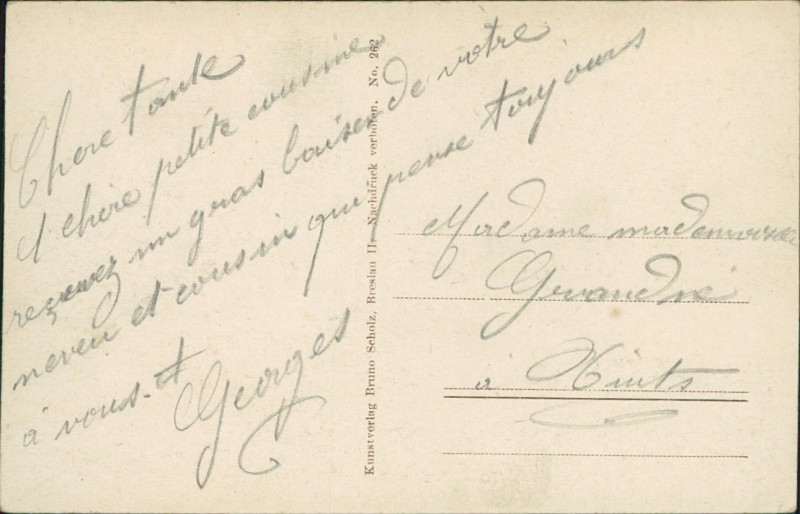 Chere tante
et chère petite cousine
recevez un gras baiser de vôtre
neveu et cousin qui pense toujours
à vous.
Georges
Kunstverlag Bruno Scholz, Breslau II. Nachdruck verboten. No. 262
Madame mademoiselle
à